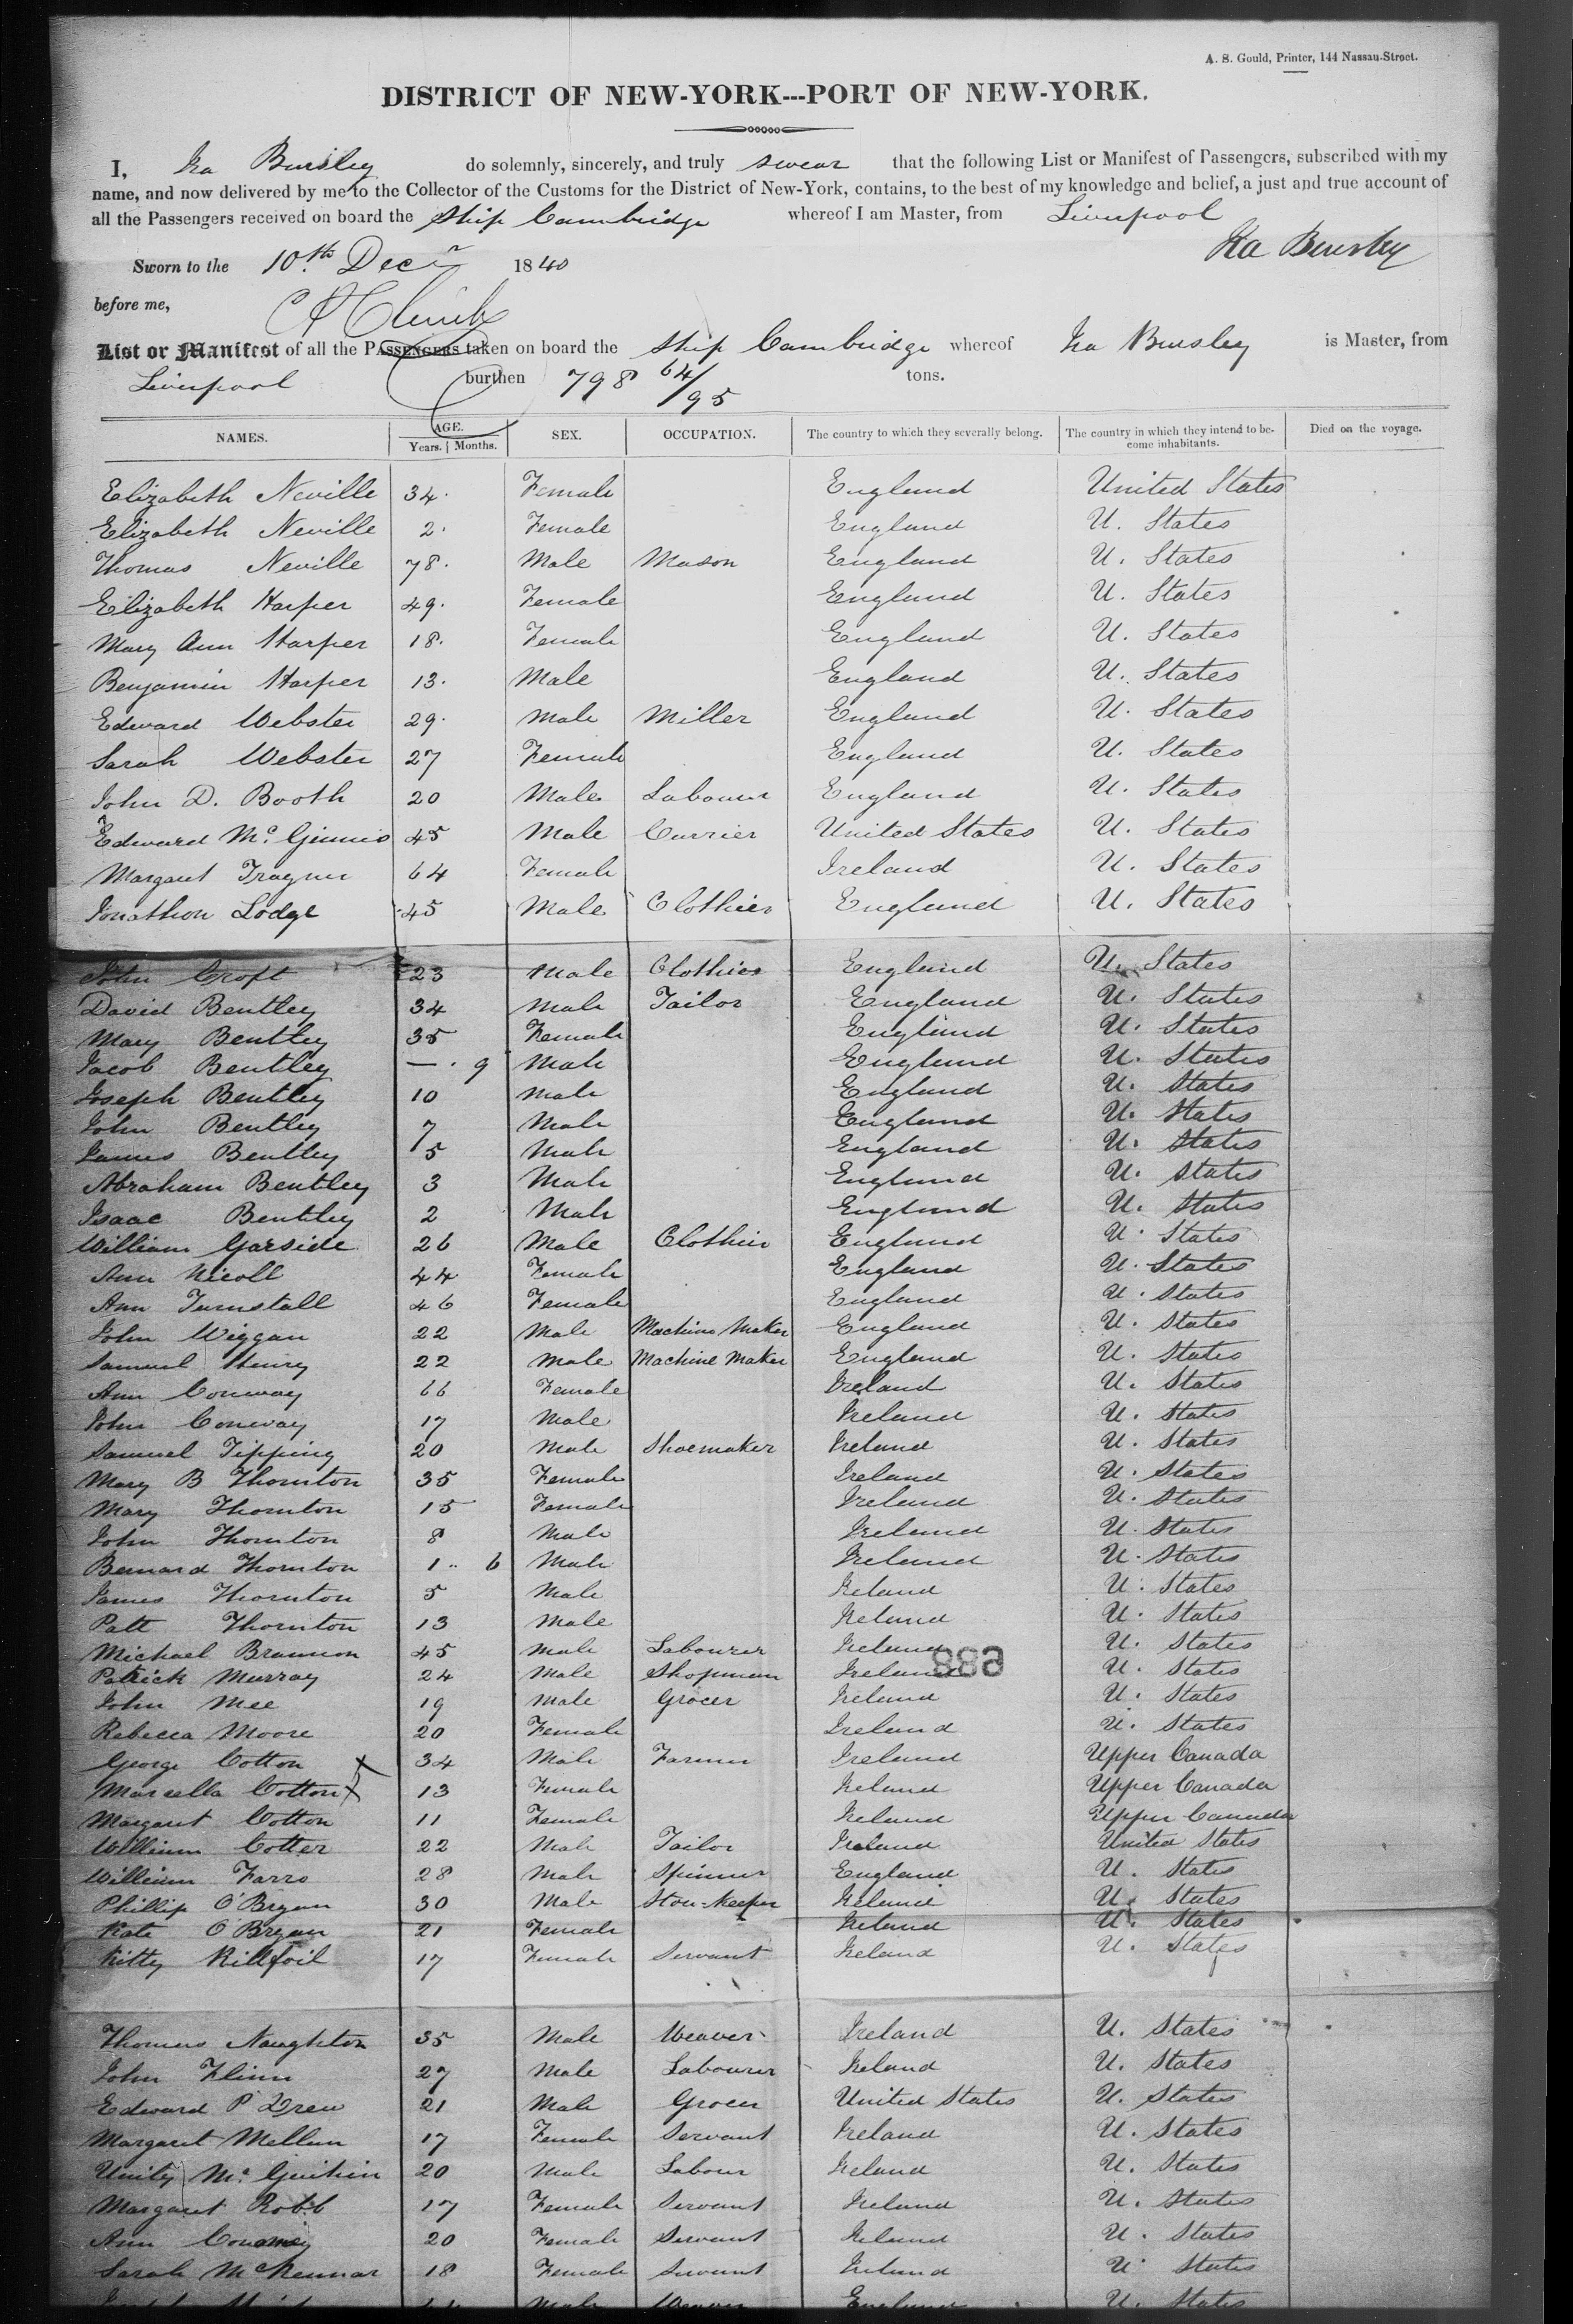 A. S. Gould, Printer, 144 Nassau-Street.
DISTRICT OF NEW-YORK---PORT OF NEW-YORK.
I, Ira Bursley do solemnly, sincerely, and truly swear that the following List or Manifest of Passengers, subscribed with my
name, and now delivered by me to the Collector of the Customs for the District of New-York, contains, to the best of my knowledge and belief, a just and true account of
all the Passengers received on board the Ship Cambridge whereof I am Master, from Liverpool
Ira Bursley
Sworn to the 10th Decr 1840
before me,
List or Manifest of all the PASSENGERS taken on board the Ship Cambridge whereof Ira Bursley is Master, from
Liverpool burthen 798 64/95 tons.
NAMES. AGE. Years. Months. SEX. OCCUPATION. The country to which they severally belong. The country in which they intend to become inhabitants. Died on the voyage.
Elizabeth Neville 34. Female England United States
Elizabeth Neville 2. Female England U. States
Thomas Neville 78. Male Mason England U. States
Elizabeth Harper 49. Female England U. States
Mary Ann Harper 18. Female England U. States
Benjamin Harper 13. Male England U. States
Edward Webster 29. Male Miller England U. States
Sarah Webster 27 Female England U. States
John D. Booth 20 Male Labourer England U. States
Edward Mc Ginnis 45 Male Currier United States U. States
Margaret 64 Female Ireland U. States
Jonathon Lodge 45 Male Clothier England U. States
John Croft 23 Male Clothier England U. States
David Bentley 34 Male Tailor England U. States
Mary Bentley 35 Female England U. States
Jacob Bentley — . 9 Male England U. States
Joseph Bentley 10 Male England U. States
John Bentley 7 Male England U. States
James Bentley 5 Male England U. States
Abraham Bentley 3 Male England U. States
Isaac Bentley 2 Male England U. States
William Garside 26 Male Clothier England U. States
Ann Nicoll 44 Female England U. States
Ann Tunstall 46 Female England U. States
John Wiggan 22 Male Machine Maker England U. States
Samuel Henry 22 Male Machine Maker England U. States
Ann Conway 66 Female Ireland U. States
John Conway 17 Male Ireland U. States
Samuel Tipping 20 Male Shoemaker Ireland U. States
Mary B Thornton 35 Female Ireland U. States
Mary Thornton 15 Female Ireland U. States
John Thornton 8 Male Ireland U. States
Bernard Thornton 1 .. 6 Male Ireland U. States
James Thornton 5 Male Ireland U. States
Patt Thornton 13 Male Ireland U. States
Michael Brannon 45 Male Labourer Ireland U. States
Patrick Murray 24 Male Shopman Ireland U. States
John Mee 19 Male Grocer Ireland U. States
Rebecca Moore 20 Female Ireland U. States
George Cotton X 34 Male Farmer Ireland Upper Canada
Marcella Cotton X 13 Female Ireland Upper Canada
Margaret Cotton 11 Female Ireland Upper Canada
William Cotter 22 Male Tailor Ireland United States
William Farro 28 Male Spinner England U. States
Phillip O'Bryan 30 Male Store-Keeper Ireland U. States
Kate O'Bryan 21 Female Ireland U. States
Kitty Killfoil 17 Female Servant Ireland U. States
Thomas Naughton 35 Male Weaver Ireland U. States
John Flinn 27 Male Labourer Ireland U. States
Edward P Drew 21 Male Grocer United States U. States
Margaret Mellun 17 Female Servant Ireland U. States
Unity Mc 20 Male Labour Ireland U. States
Margaret Robb 17 Female Servant Ireland U. States
Ann 20 Female Servant Ireland U. States
Sarah McKennar 18 Female Servant Ireland U. States
Male Weaver England U. States